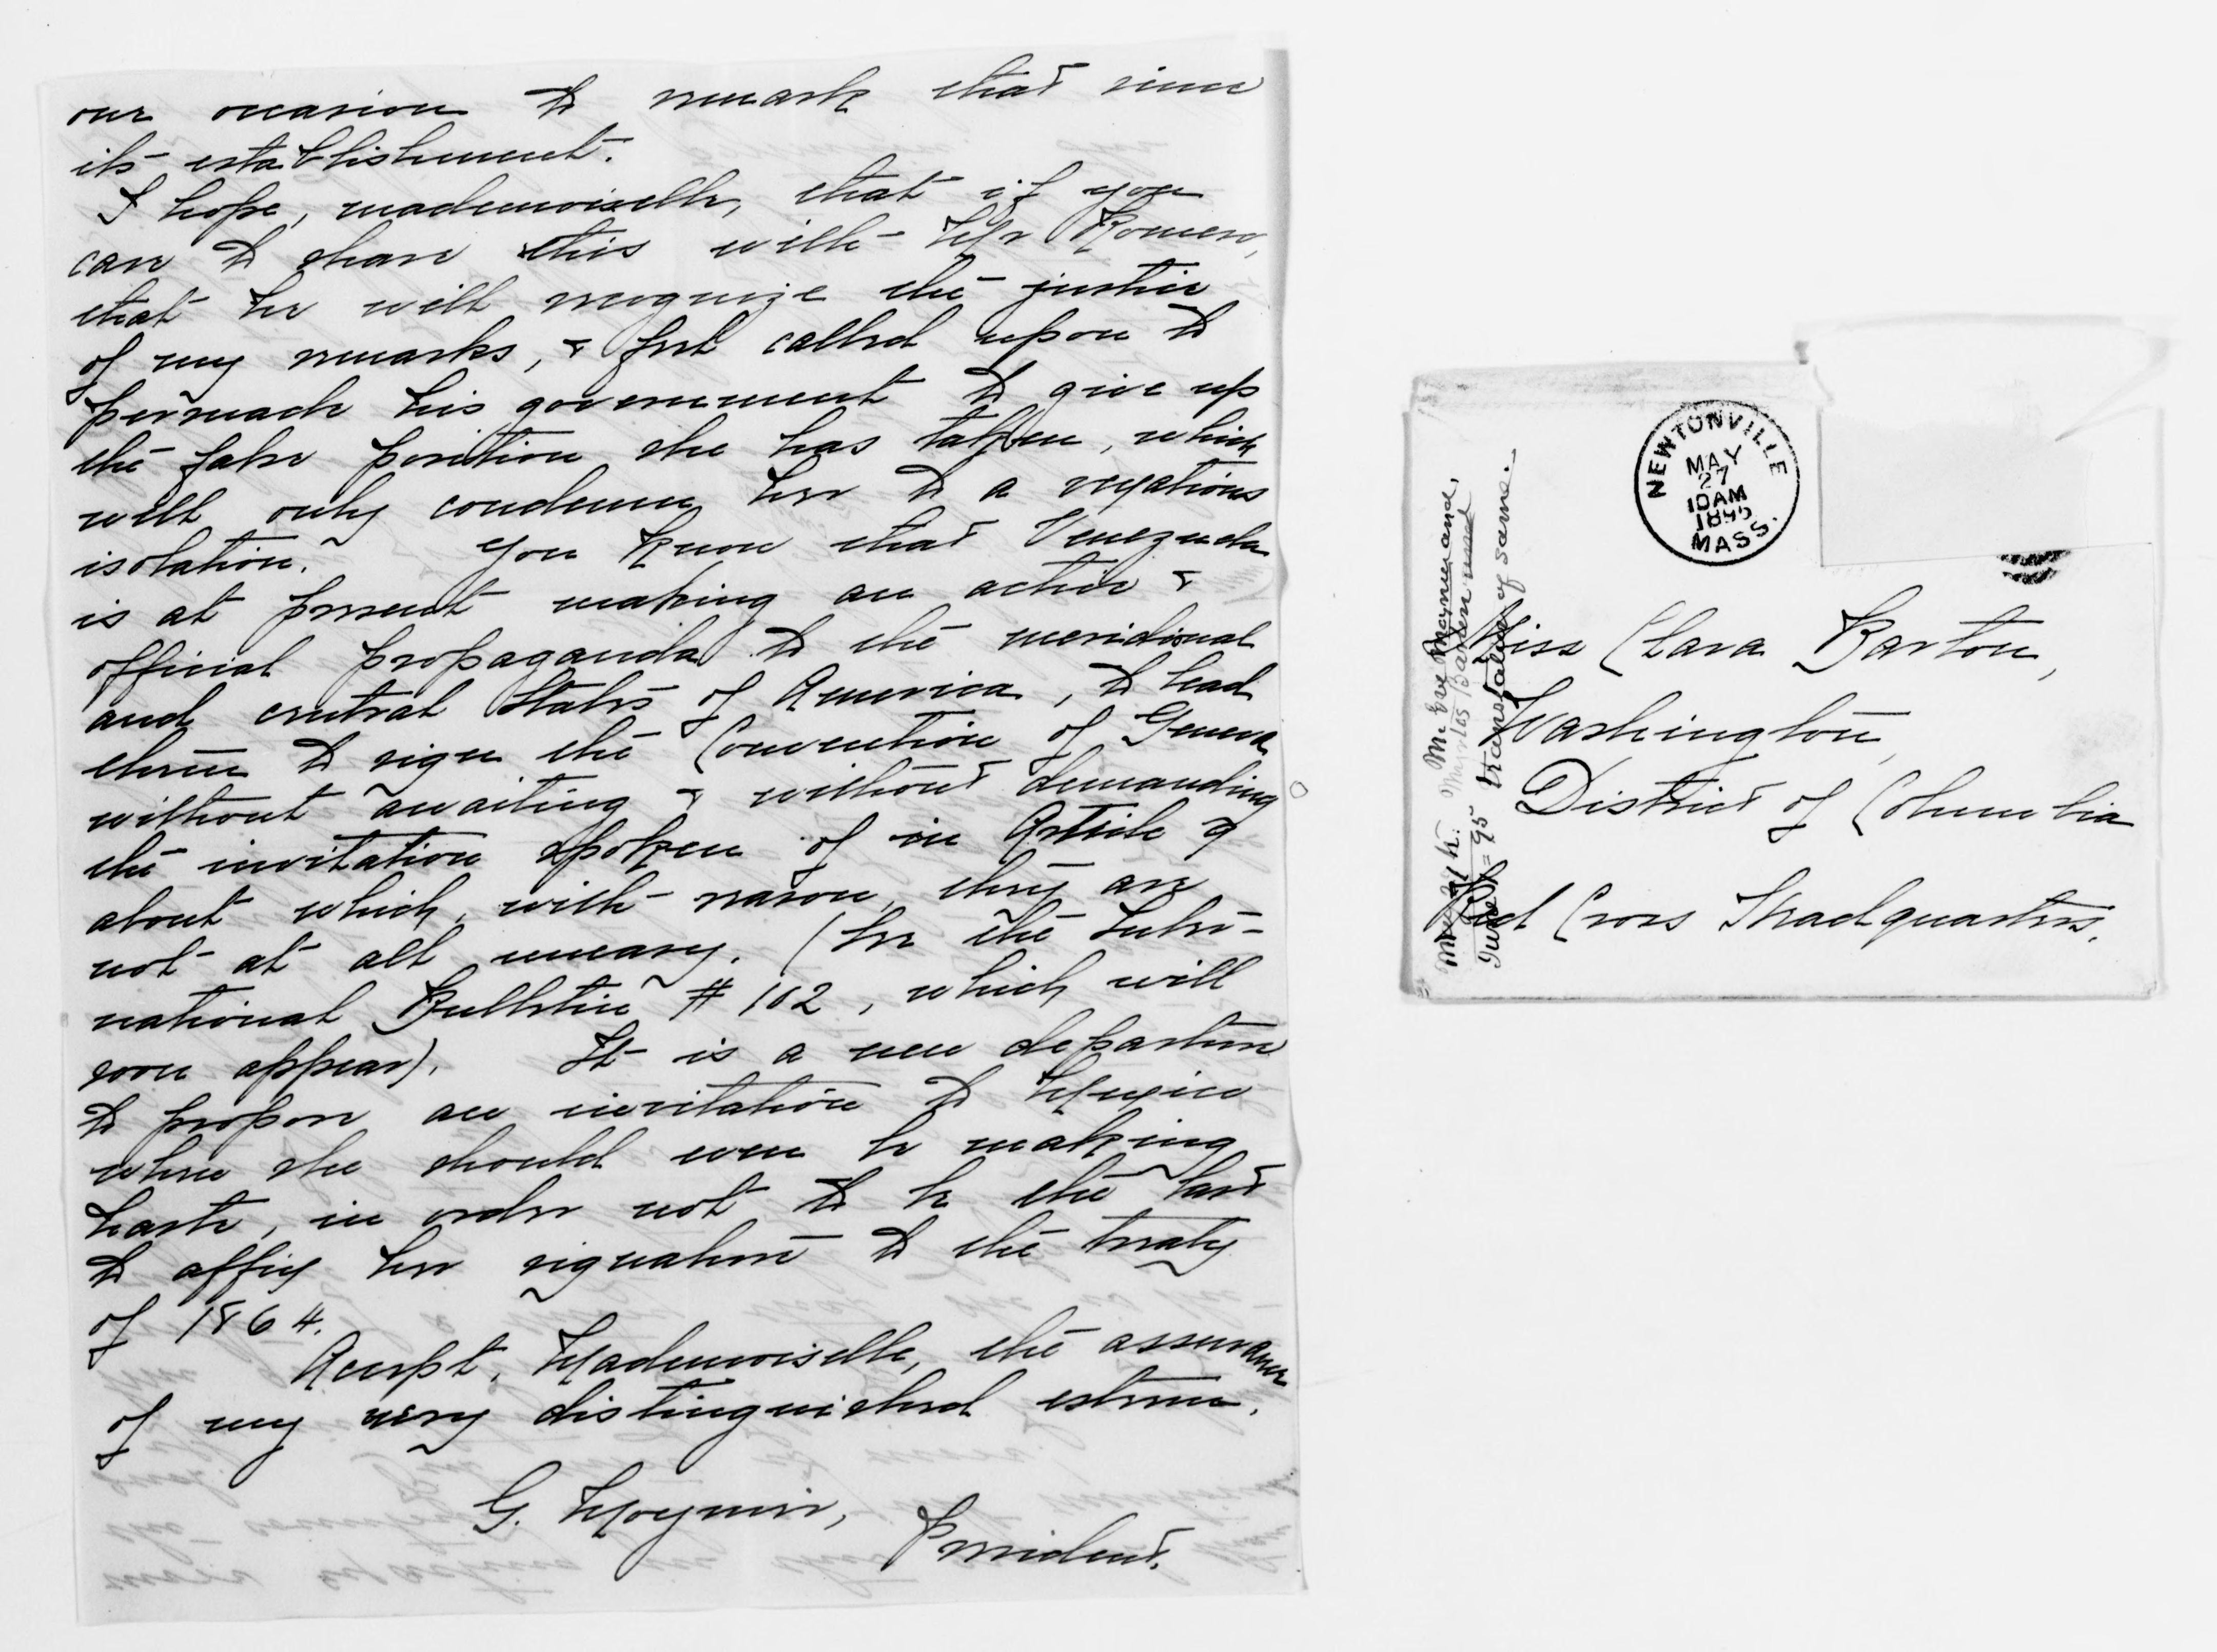 our occasion to remark that since
its establishment.
I hope, mademoiselle, that if you
care to share this with Mr Romero,
that he will recognize the justice
of my remarks, & feel called upon to
persuade his government to give up
the false position she has taken, which
will only condemn her to a vexatious
isolation. You know that Venezuela
is at present making an active &
official propaganda to the meridional
and central States of America, to lead
them to sign the Convention of Geneva
without awaiting & without demanding
the invitation spoken of in Article 9
about which, with reason, they are
not at all uneasy. (See the Inter-
national Bulletin # 102, which will
soon appear). It is a new departure
to propose an invitation to Mexico
when she should even be making
haste, in order not to be the last
to affix her signature to the treaty
of 1864.
Accept, Mademoiselle, the assurance
of my very distinguished esteem.
G. Moynier,
President.
NEWTONVILLE
MAY
27
10 AM
1895
MASS.
Miss Clara Barton,
Washington,
District of Columbia
Red Cross Headquarters.
June = 95 translation of same.